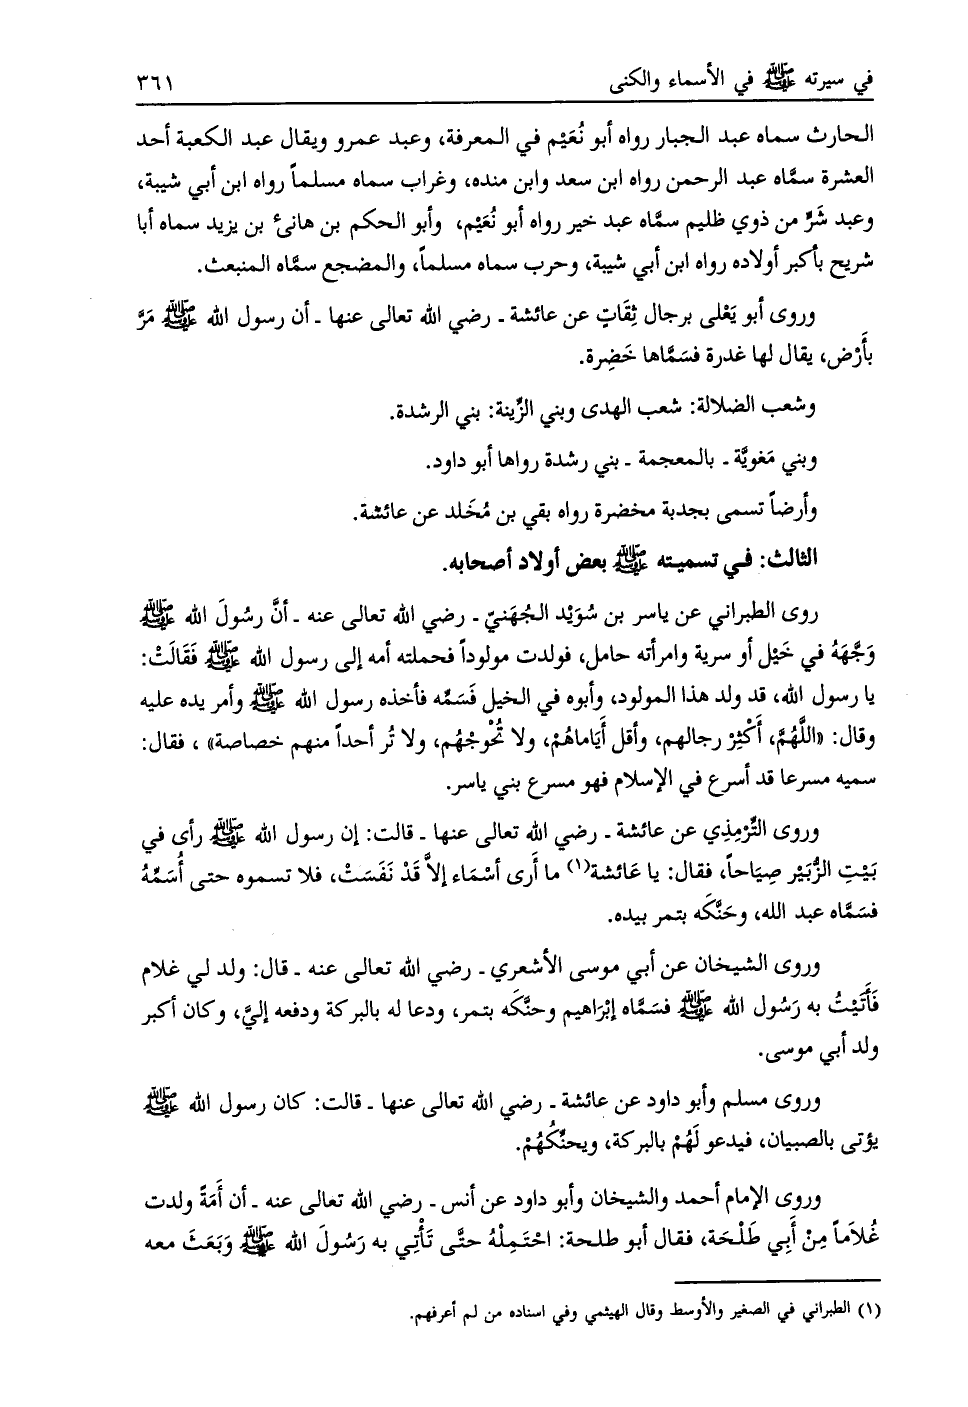 في سيرته ﷺ في الأسماء والكنى ٣٦١
الحارث سماه عبد الجبار رواه أبو نُعَيْم في المعرفة، وعبد عمرو ويقال عبد الكعبة أحد
العشرة سمَّاه عبد الرحمن رواه ابن سعد وابن منده، وغراب سماه مسلماً رواه ابن أبي شيبة،
وعبد شَرٍّ من ذوي ظليم سمَّاه عبد خير رواه أبو نُعَيْم، وأبو الحكم بن هانئ بن يزيد سماه أبا
شريح بأكبر أولاده رواه ابن أبي شيبة، وحرب سماه مسلماً، والمضجع سمَّاه المنبعث.
وروى أبو يَعْلى برجال ثِقَاتٍ عن عائشة ـ رضي الله تعالى عنها ـ أن رسول الله ﷺ مَرَّ
بأَرْض، يقال لها غدرة فسَمَّاها خَضِرة.
وشعب الضلالة: شعب الهدى وبني الزِّينة: بني الرشدة.
وبني مَغويَّة ـ بالمعجمة ـ بني رشدة رواها أبو داود.
وأرضاً تسمى بجدبة مخضرة رواه بقي بن مُخَلد عن عائشة.
الثالث: في تسميته ﷺ بعض أولاد أصحابه.
روى الطبراني عن ياسر بن سُوَيْد الجُهَنيّ ـ رضي الله تعالى عنه ـ أنَّ رسُولَ الله ﷺ
وَجَّهَهُ في خَيْل أو سرية وامرأته حامل، فولدت مولوداً فحملته أمه إلى رسول الله ﷺ فَقَالَتْ:
يا رسول الله، قد ولد هذا المولود، وأبوه في الخيل فَسَمِّه فأخذه رسول الله ﷺ وأمر يده عليه
وقال: «اللَّهُمَّ، أَكْثِرْ رجالهم، وأقل أَيَاماهُمْ، ولا تُحْوجْهُم، ولا تُر أحداً منهم خصاصة» ، فقال:
سميه مسرعا قد أسرع في الإسلام فهو مسرع بني ياسر.
وروى التِّرْمِذي عن عائشة ـ رضي الله تعالى عنها ـ قالت: إن رسول الله ﷺ رأى في
بَيْتِ الزُّبَيْر صِيَاحاً، فقال: يا عَائشة(١) ما أَرى أسْمَاء إلاَّ قَدْ نَفَسَتْ، فلا تسموه حتى أُسَمِّهُ
فسَمَّاه عبد الله، وحَنَّكَه بتمر بيده.
وروى الشيخان عن أبي موسى الأشعري ـ رضي الله تعالى عنه ـ قال: ولد لي غلام
فَأَتَيْتُ به رَسُول الله ﷺ فسَمَّاه إبْرَاهيم وحنَّكَه بتمر، ودعا له بالبركة ودفعه إليَّ، وكان أكبر
ولد أبي موسى.
وروى مسلم وأبو داود عن عائشة ـ رضي الله تعالى عنها ـ قالت: كان رسول الله ﷺ
يؤتى بالصبيان، فيدعو لَهُمْ بالبركة، ويحنِّكُهُمْ.
وروى الإمام أحمد والشيخان وأبو داود عن أنس ـ رضي الله تعالى عنه ـ أن أَمَةً ولدت
غُلاَماً مِنْ أَبِي طَلْحَة، فقال أبو طلحة: احْتَمِلْهُ حتَّى تَأْتِي به رَسُولَ الله ﷺ وَبَعَثَ معه
(١) الطبراني في الصغير والأوسط وقال الهيثمي وفي اسناده من لم أعرفهم.